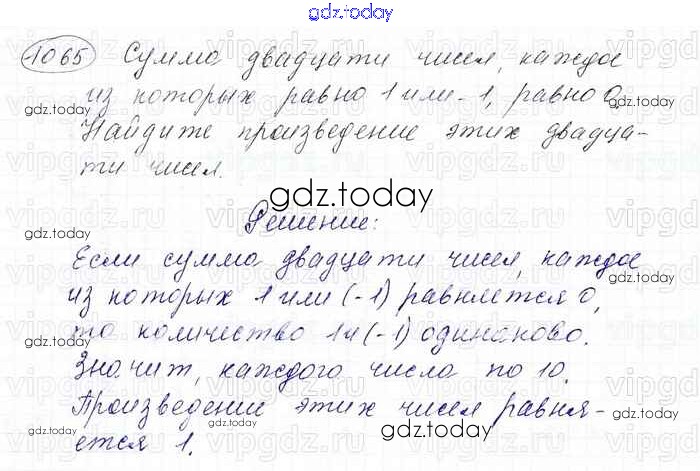 gdz.today
1065 Сумма двадцати чисел, каждое
из которых равно 1 или -1, равно 0.
Найдите произведение этих двадца-
ти чисел.
gdz.today
Решение:
Если сумма двадцати чисел, каждое
из которых 1 или (-1) равняется 0,
то количество 1 и (-1) одинаково.
Значит, каждого числа по 10.
Произведение этих чисел равня-
ется 1.
gdz.today